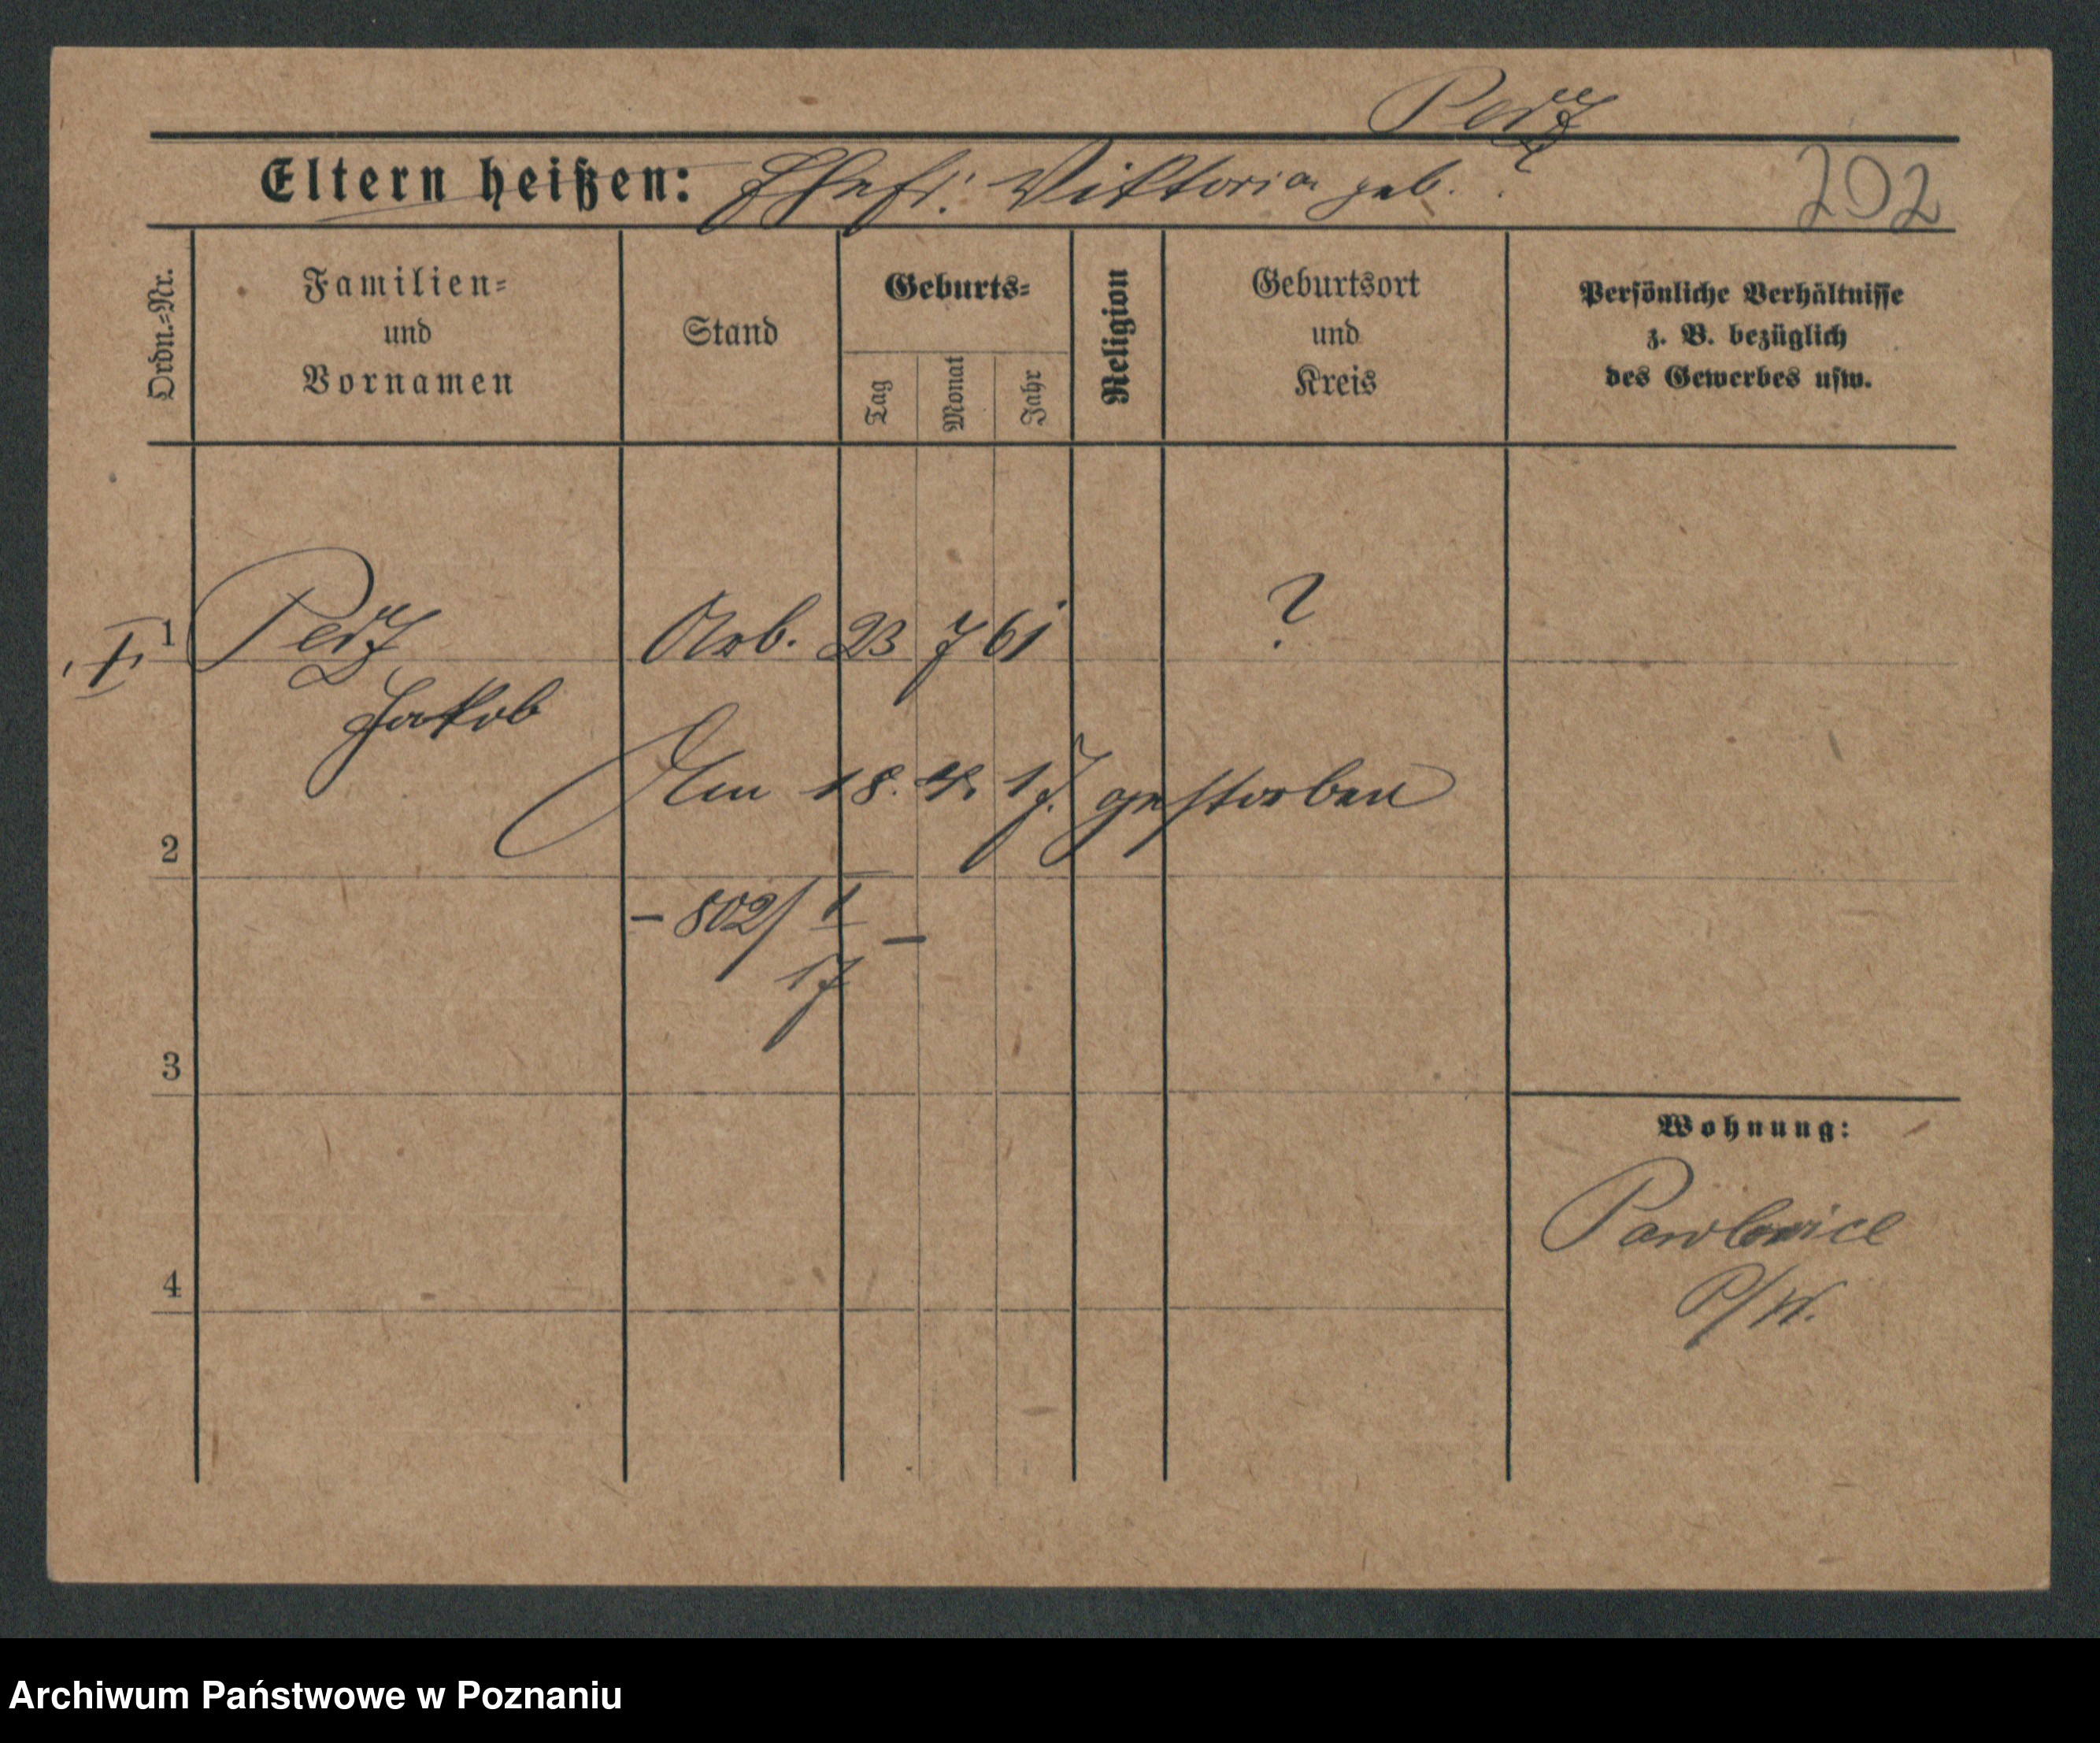 Pedz
Eltern heißen: Ehefr. Viktoria geb. ?
202
Ordn.-Nr.
Familien-
und
Vornamen
Stand
Geburts-
Tag
Monat
Jahr
Religion
Geburtsort
und
Kreis
Persönliche Verhältnisse
z. B. bezüglich
des Gewerbes usw.
1 Pedz Arb. 23 7 61 ?
Jakob
Am 18. 4. 17. gestorben
2
- 802/ I
17 -
3
Wohnung:
Pawlowice
P/W.
4
Archiwum Państwowe w Poznaniu